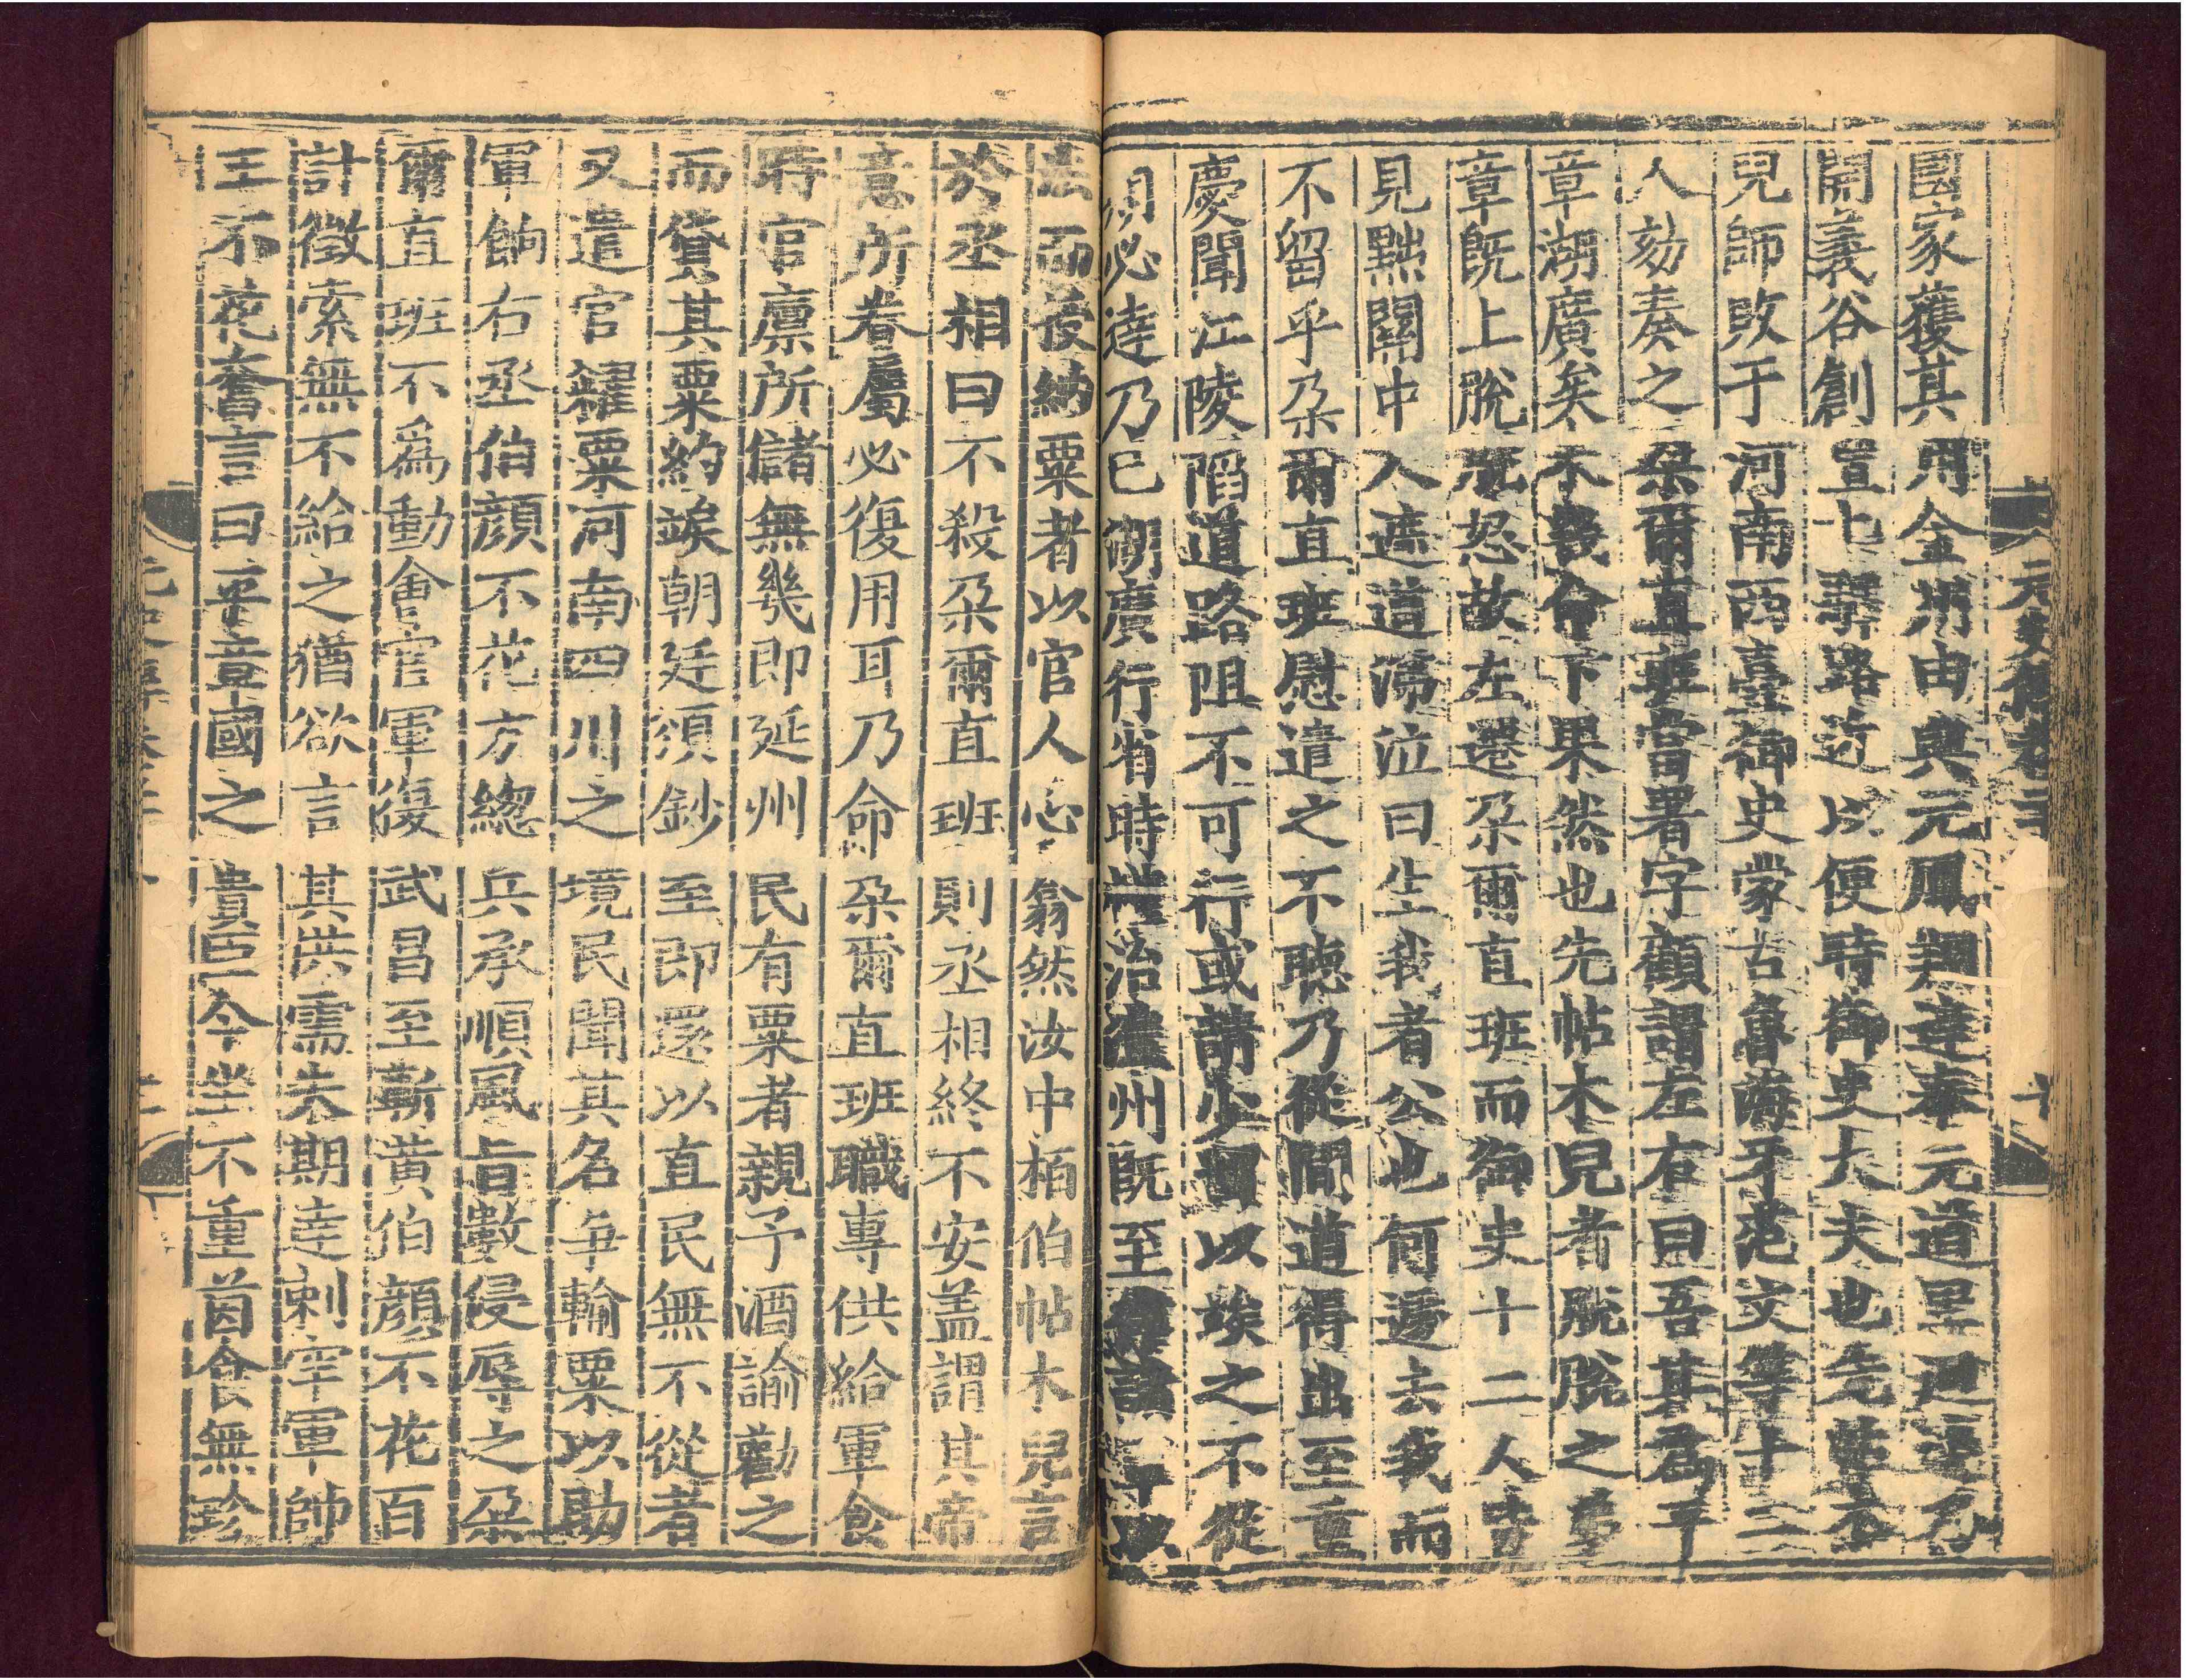 元史傳卷二十
國家獲其用金州由興元鳳翔達奉元道里迴遠乃
開義谷創置七驛路近以便時御史大夫也先帖木
兒師敗于河南西臺御史蒙古魯海牙范文等十二
人劾奏之朶爾直班當署字顧謂左右曰吾其爲平
章湖廣矣未幾命下果然也先帖木兒者脫脫之弟
章既上脫脫怒故左遷朶爾直班而御史十二人皆
見黜關中人遮道涕泣曰生我者公也何遽去我而
不留乎朶爾直班慰遣之不聽乃從間道得出至重
慶聞江陵陷道路阻不可行或請少留以竢之不從
期必達乃已湖廣行省時權治澧州既至
法而授納粟者以官人心翕然汝中栢伯帖木兒言
於丞相曰不殺朶爾直班則丞相終不安盖謂其帝
意所眷屬必復用耳乃命朶爾直班職專供給軍食
時官廪所儲無幾即延州民有粟者親予酒諭勸之
而貸其粟約竢朝廷頒鈔至即還以直民無不從者
又遣官糴粟河南四川之境民聞其名爭輸粟以助
軍餉右丞伯顏不花方總兵承順風旨數侵辱之朶
爾直班不爲動會官軍復武昌至蘄黃伯顏不花百
計徵索無不給之猶欲言其供需失期達剌罕軍帥
王不花奮言曰平章國之貴臣今坐不重茵食無珍